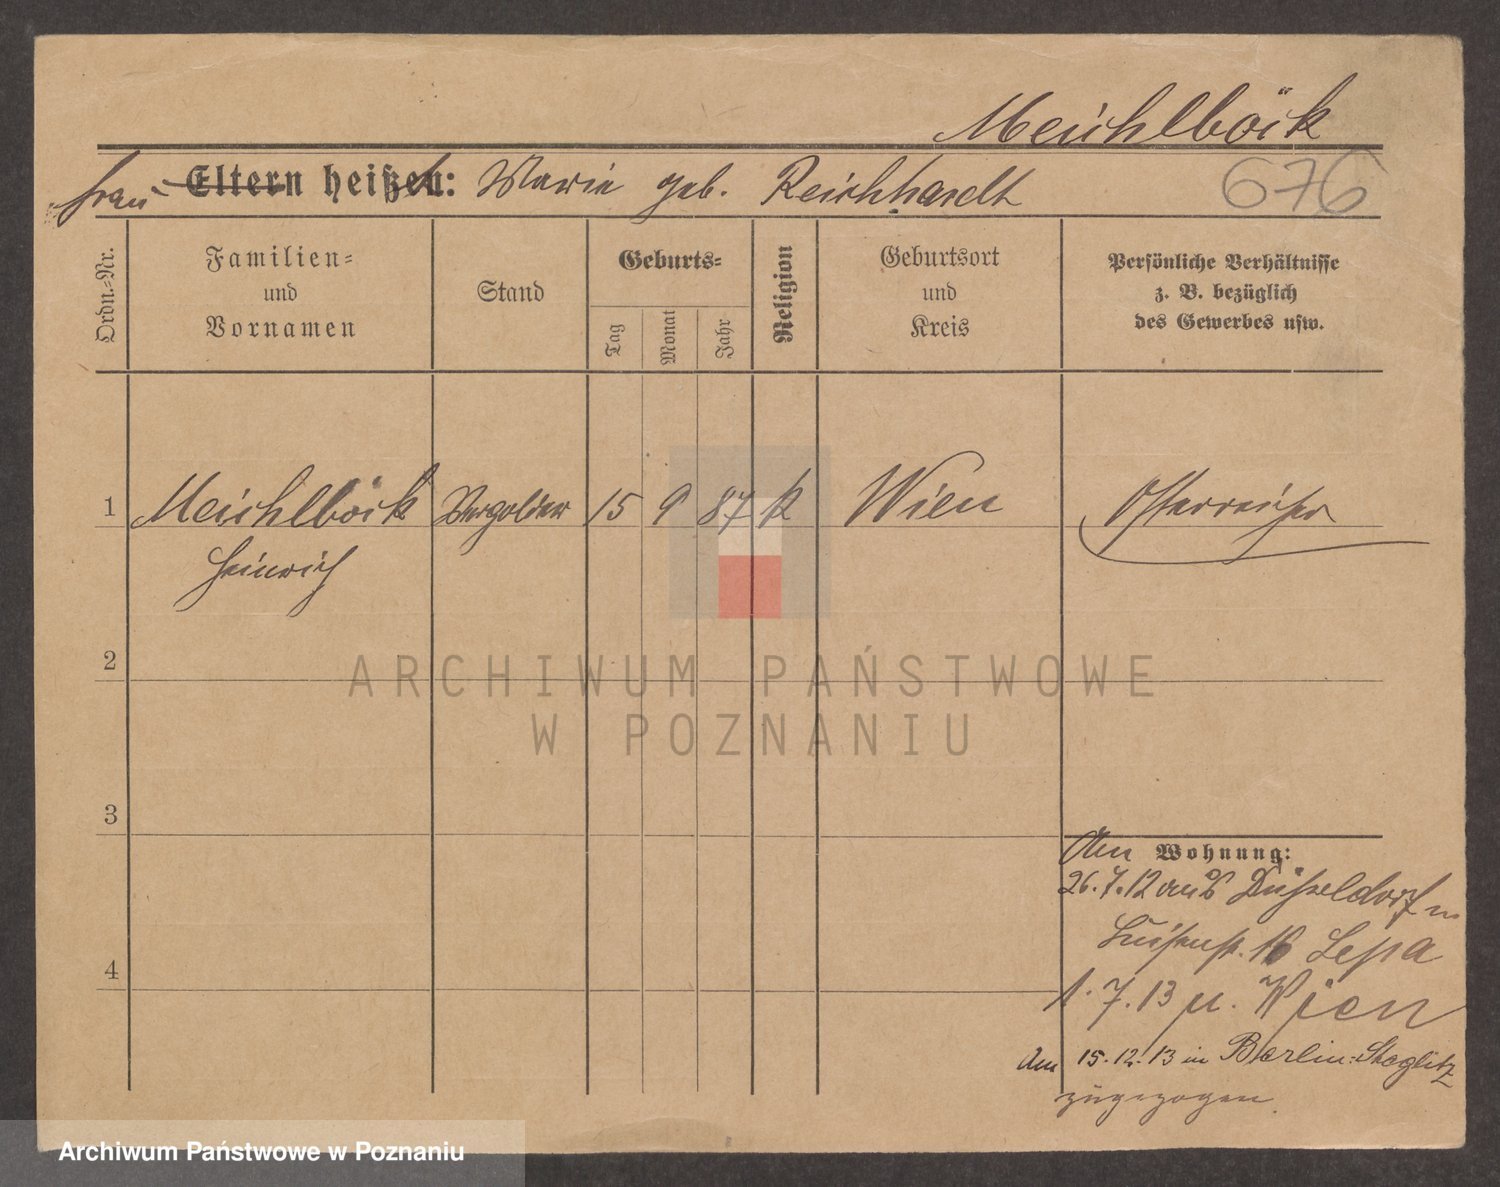 Meichlböck
676
Frau Eltern heißen: Marie geb. Reichhardt
Ordn.-Nr.
Familien-
und
Vornamen
Stand
Geburts-
Tag
Monat
Jahr
Religion
Geburtsort
und
Kreis
Persönliche Verhältnisse
z. B. bezüglich
des Gewerbes usw.
1 Meichlböck Vergolder 15 9 87 k Wien Österreicher
Heinrich
2
ARCHIWUM PAŃSTWOWE
W POZNANIU
3
Am Wohnung:
26.7.12 aus Düsseldorf n.
Luisenst. 16
4
1.7.13 n. Wien
Am 15.12.13 in Berlin-Steglitz
zugezogen.
Archiwum Państwowe w Poznaniu